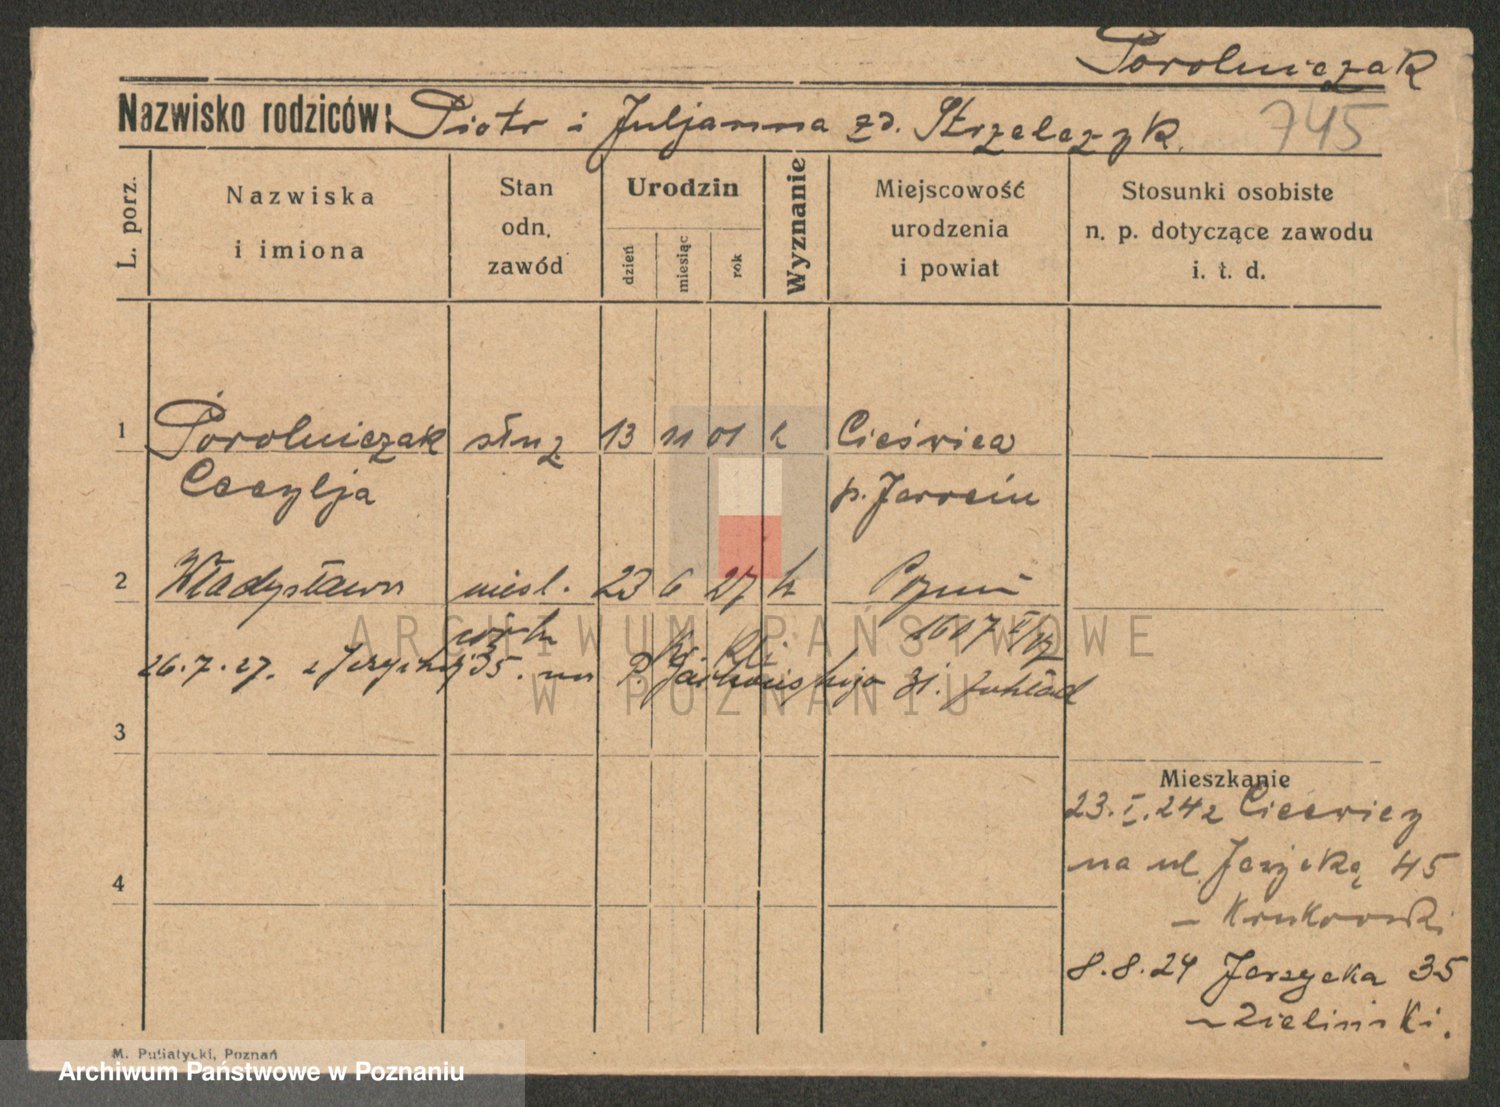 Porolniczak
Nazwisko rodziców: Piotr i Juljanna zd. Strzelczyk. 745
L. porz.
Nazwiska
i imiona
Stan
odn.
zawód
Urodzin
dzień
miesiąc
rok
Wyznanie
Miejscowość
urodzenia
i powiat
Stosunki osobiste
n. p. dotyczące zawodu
i. t. d.
1 Porolniczak służ. 13 11 01 k Cieświca
Cecylja p. Jarocin
2 Władysława niesl. 23 6 27 k
córka
26.7.27. z 35. na 31.
3
Mieszkanie
23.I.24 z
na ul. 45
4
– Krukowski
8.8.24 Jerzycka 35
– Zielinski.
M. Putiatycki, Poznań
ARCHIWUM PAŃSTWOWE
W POZNANIU
Archiwum Państwowe w Poznaniu